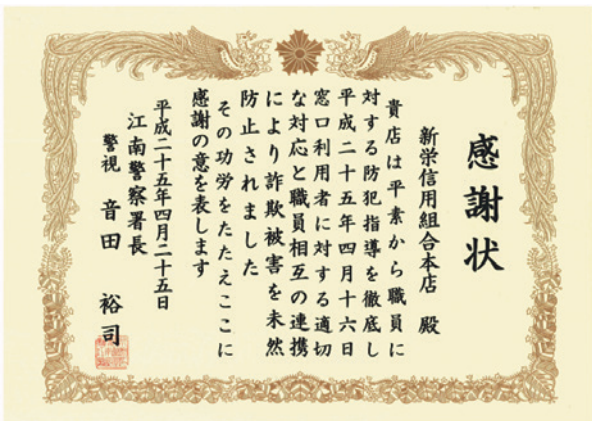 感謝状
新栄信用組合本店 殿
貴店は平素から職員に
対する防犯指導を徹底し
平成二十五年四月十六日
窓口利用者に対する適切
な対応と職員相互の連携
により詐欺被害を未然
防止されました
その功労をたたえここに
感謝の意を表します
平成二十五年四月二十五日
江南警察署長
警視 音田 裕司